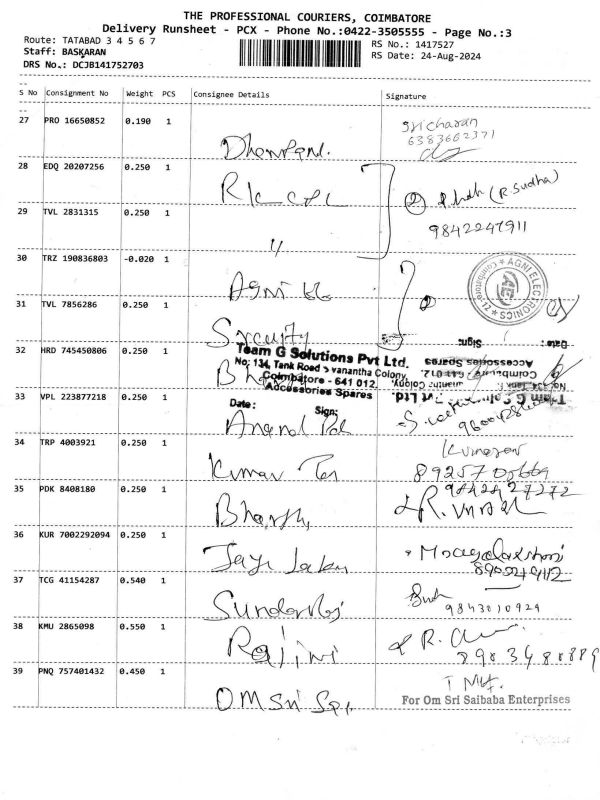 THE PROFESSIONAL COURIERS, COIMBATORE
Delivery Runsheet - PCX - Phone No.:0422-3505555 - Page No.:3
Route: TATABAD 3 4 5 6 7
RS No.: 1417527
Staff: BASKARAN
RS Date: 24-Aug-2024
DRS No.: DCJB141752703
S No Consignment No Weight PCS Consignee Details Signature
27 PRO 16650852 0.190 1
Sricharan
6383662371
28 EDQ 20207256 0.250 1
(R. Sudha)
29 TVL 2831315 0.250 1 "
9842247911
30 TRZ 190836803 -0.020 1 Agni
AGNI ELECTRONICS
31 TVL 7856286 0.250 1 Security
32 HRD 745450806 0.250 1
Team G Solutions Pvt Ltd.
No: 134, Tank Road
vanantha Colony,
Coimbatore - 641 012.
Accessories Spares
Date: Sign:
33 VPL 223877218 0.250 1 Anand
34 TRP 4003921 0.250 1 Kumar
Kumaran
35 PDK 8408180 0.250 1
9842427272
36 KUR 7002292094 0.250 1 Jaya
37 TCG 41154287 0.540 1
9843010929
38 KMU 2865098 0.550 1 Rajini
39 PNQ 757401432 0.450 1 OM Sri Sai
For Om Sri Saibaba Enterprises